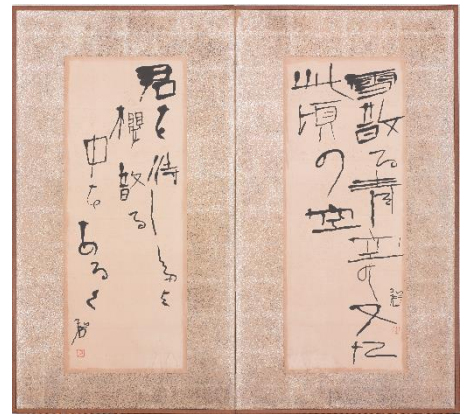 雪散る青空の又た
此頃の空
碧
君を待したよ
櫻散る
中をあるく
碧